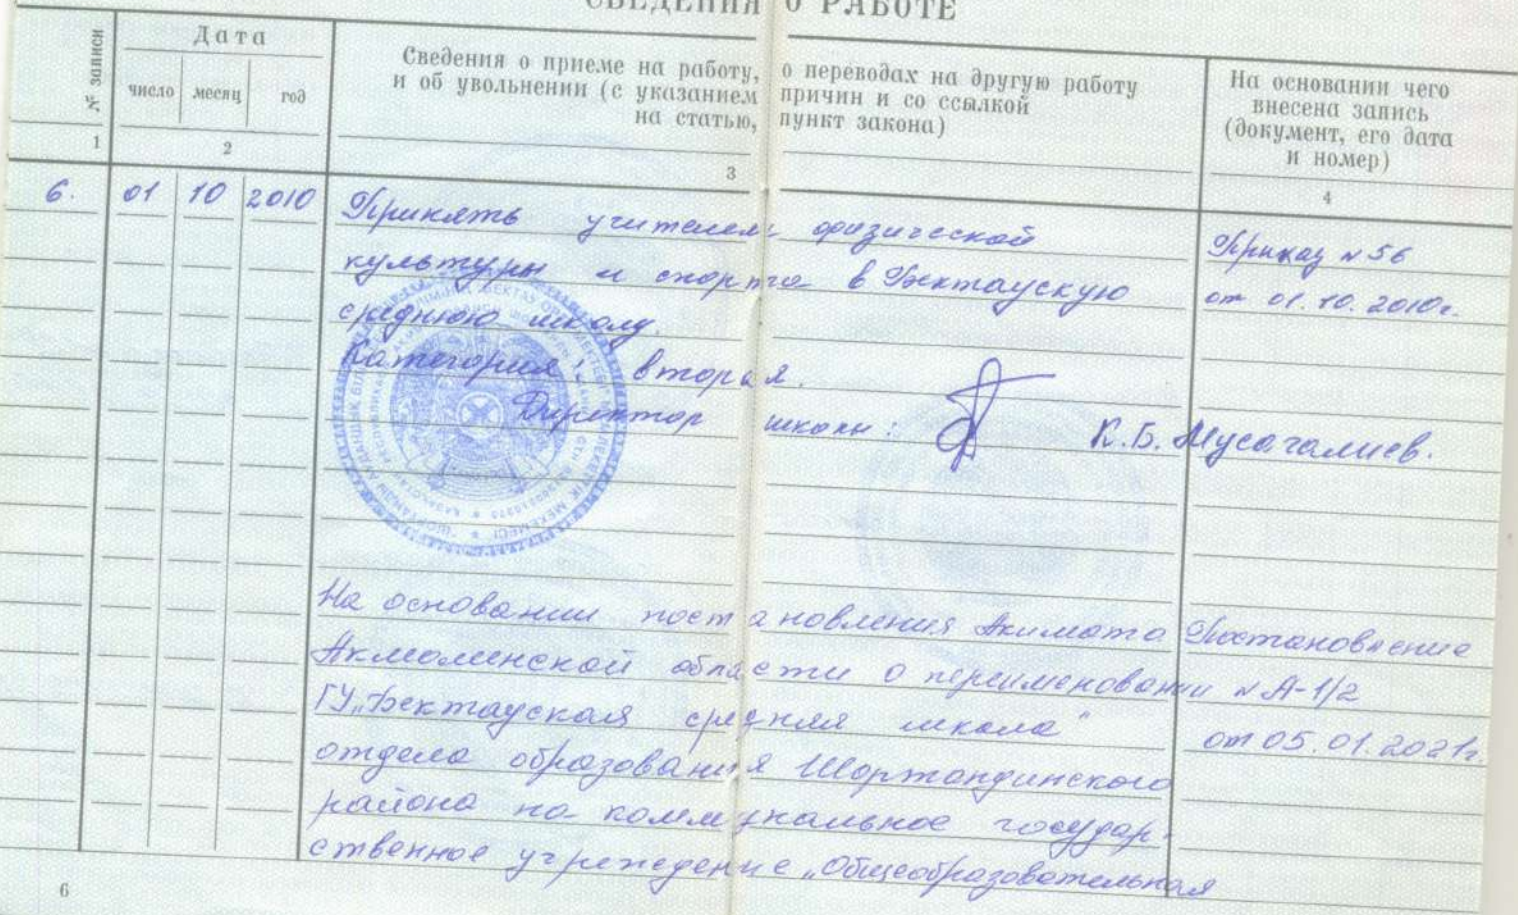 СВЕДЕНИЯ О РАБОТЕ
№ записи
Дата
число месяц год
Сведения о приеме на работу, о переводах на другую работу
и об увольнении (с указанием причин и со ссылкой
на статью, пункт закона)
На основании чего
внесена запись
(документ, его дата
и номер)
1 2 3 4
6. 01 10 2010 Принять учителем физической Приказ №56
культуры и спорта в Бектаускую от 01.10.2010г.
среднюю школу.
Категория: вторая.
Директор школы: К.Б. Мусагалиев.
На основании постановления Акимата Постановление
Акмолинской области о переименовании № А-1/2
ГУ „Бектауская средняя школа" от 05.01.2021г.
отдела образования Шортандинского
района на коммунальное государ-
ственное учреждение „Общеобразовательная
6